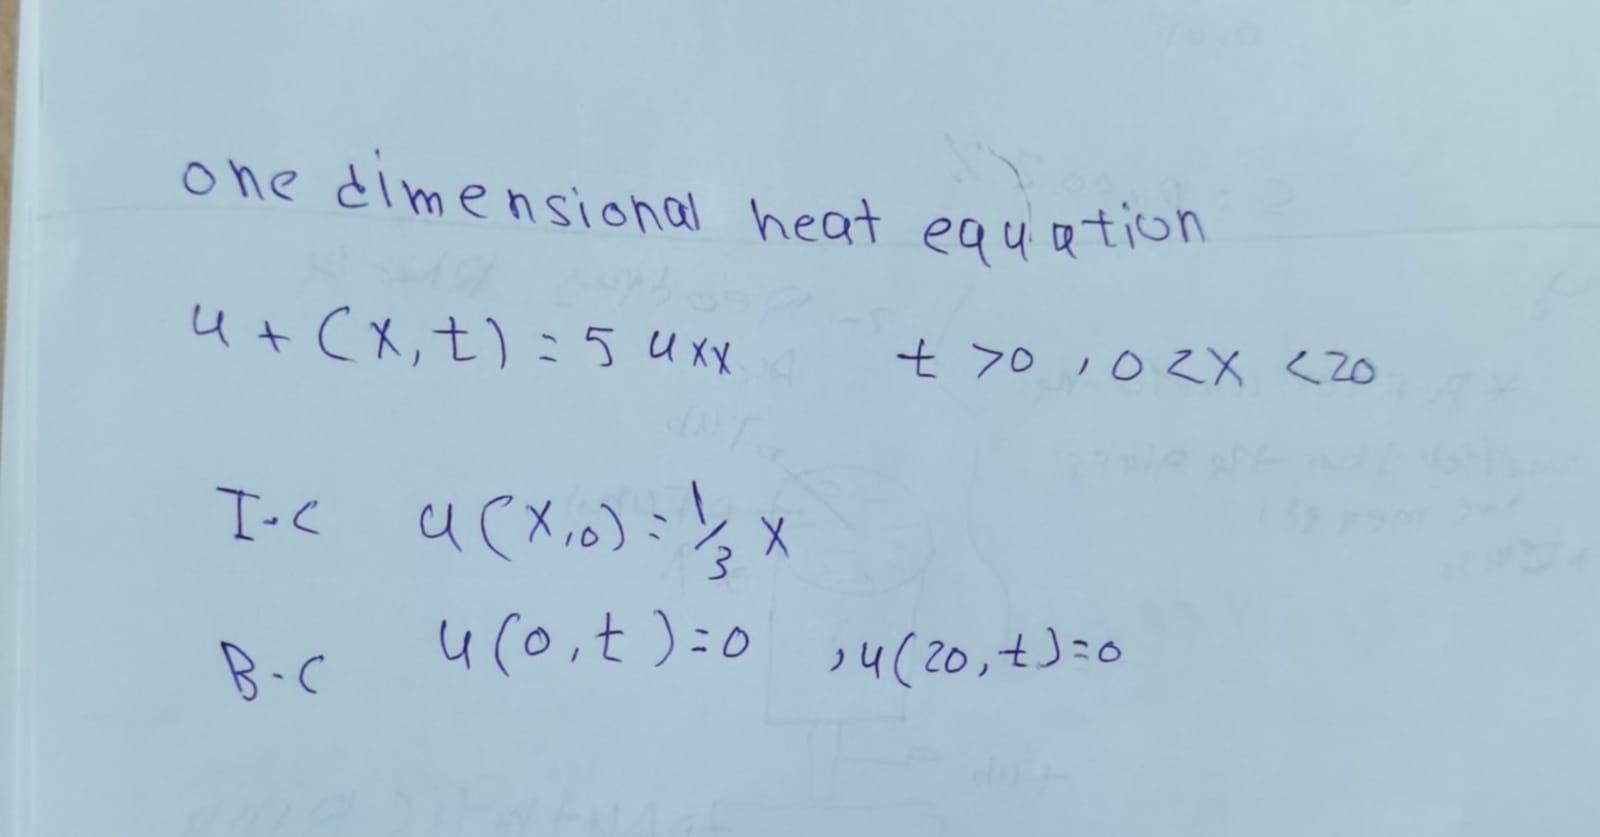 one dimensional heat equation
ut(x,t) = 5 uxx t >0 , 0 <x <20
I.C u(x,0) = 1/3 x
B.C u(0,t)=0 , u(20,t)=0